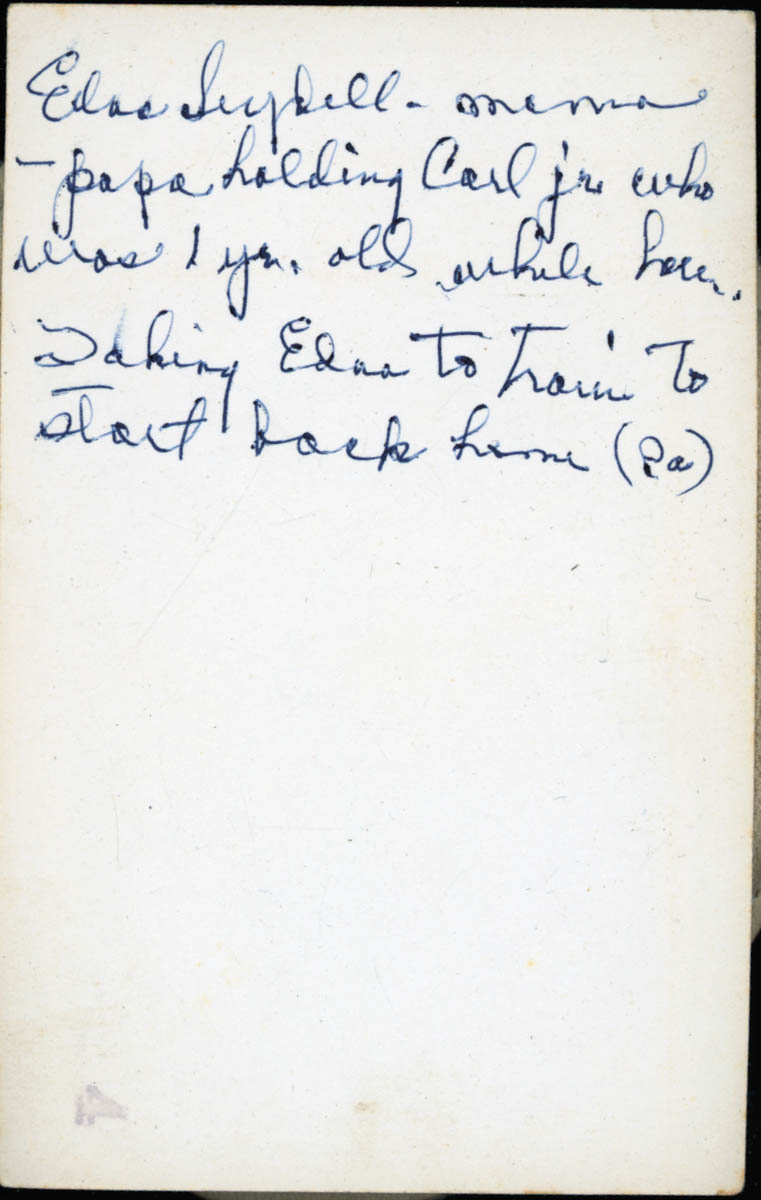 Edna Seydell - mama
- papa holding Carl jr. who
was 1 yr. old while here.
Taking Edna to train to
start back home (Pa)
4